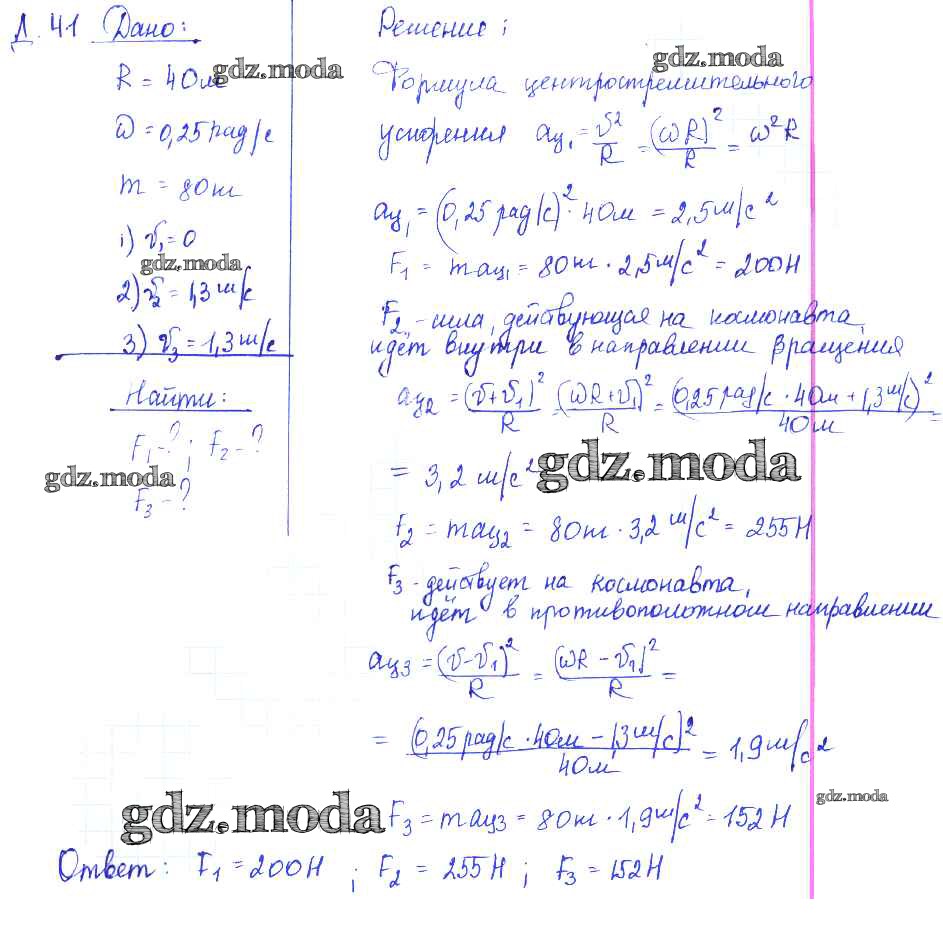 Д. 41 Дано:
R = 40м
ω = 0,25 рад/с
m = 80кг
1) v₁ = 0
2) v₂ = 1,3 м/с
3) v₃ = 1,3 м/с
Найти:
F₁ - ? ; F₂ - ?
F₃ - ?
Решение:
Формула центростремительного
ускорения aц₁ = v²/R = (ωR)²/R = ω²R
aц₁ = (0,25 рад/с)² · 40м = 2,5 м/с²
F₁ = maц₁ = 80кг · 2,5 м/с² = 200Н
F₂ - сила, действующая на космонавта,
идёт внутри в направлении вращения
aц₂ = (v+v₁)²/R = (ωR+v₁)²/R = (0,25 рад/с · 40м + 1,3 м/с)²/40м =
= 3,2 м/с²
F₂ = maц₂ = 80кг · 3,2 м/с² = 255Н
F₃ - действует на космонавта,
идёт в противоположном направлении
aц₃ = (v-v₁)²/R = (ωR - v₁)²/R =
= (0,25 рад/с · 40м - 1,3 м/с)²/40м = 1,9 м/с²
F₃ = maц₃ = 80кг · 1,9 м/с² = 152Н
Ответ: F₁ = 200Н ; F₂ = 255Н ; F₃ = 152Н
gdz.moda
gdz.moda
gdz.moda
gdz.moda
gdz.moda
gdz.moda
gdz.moda